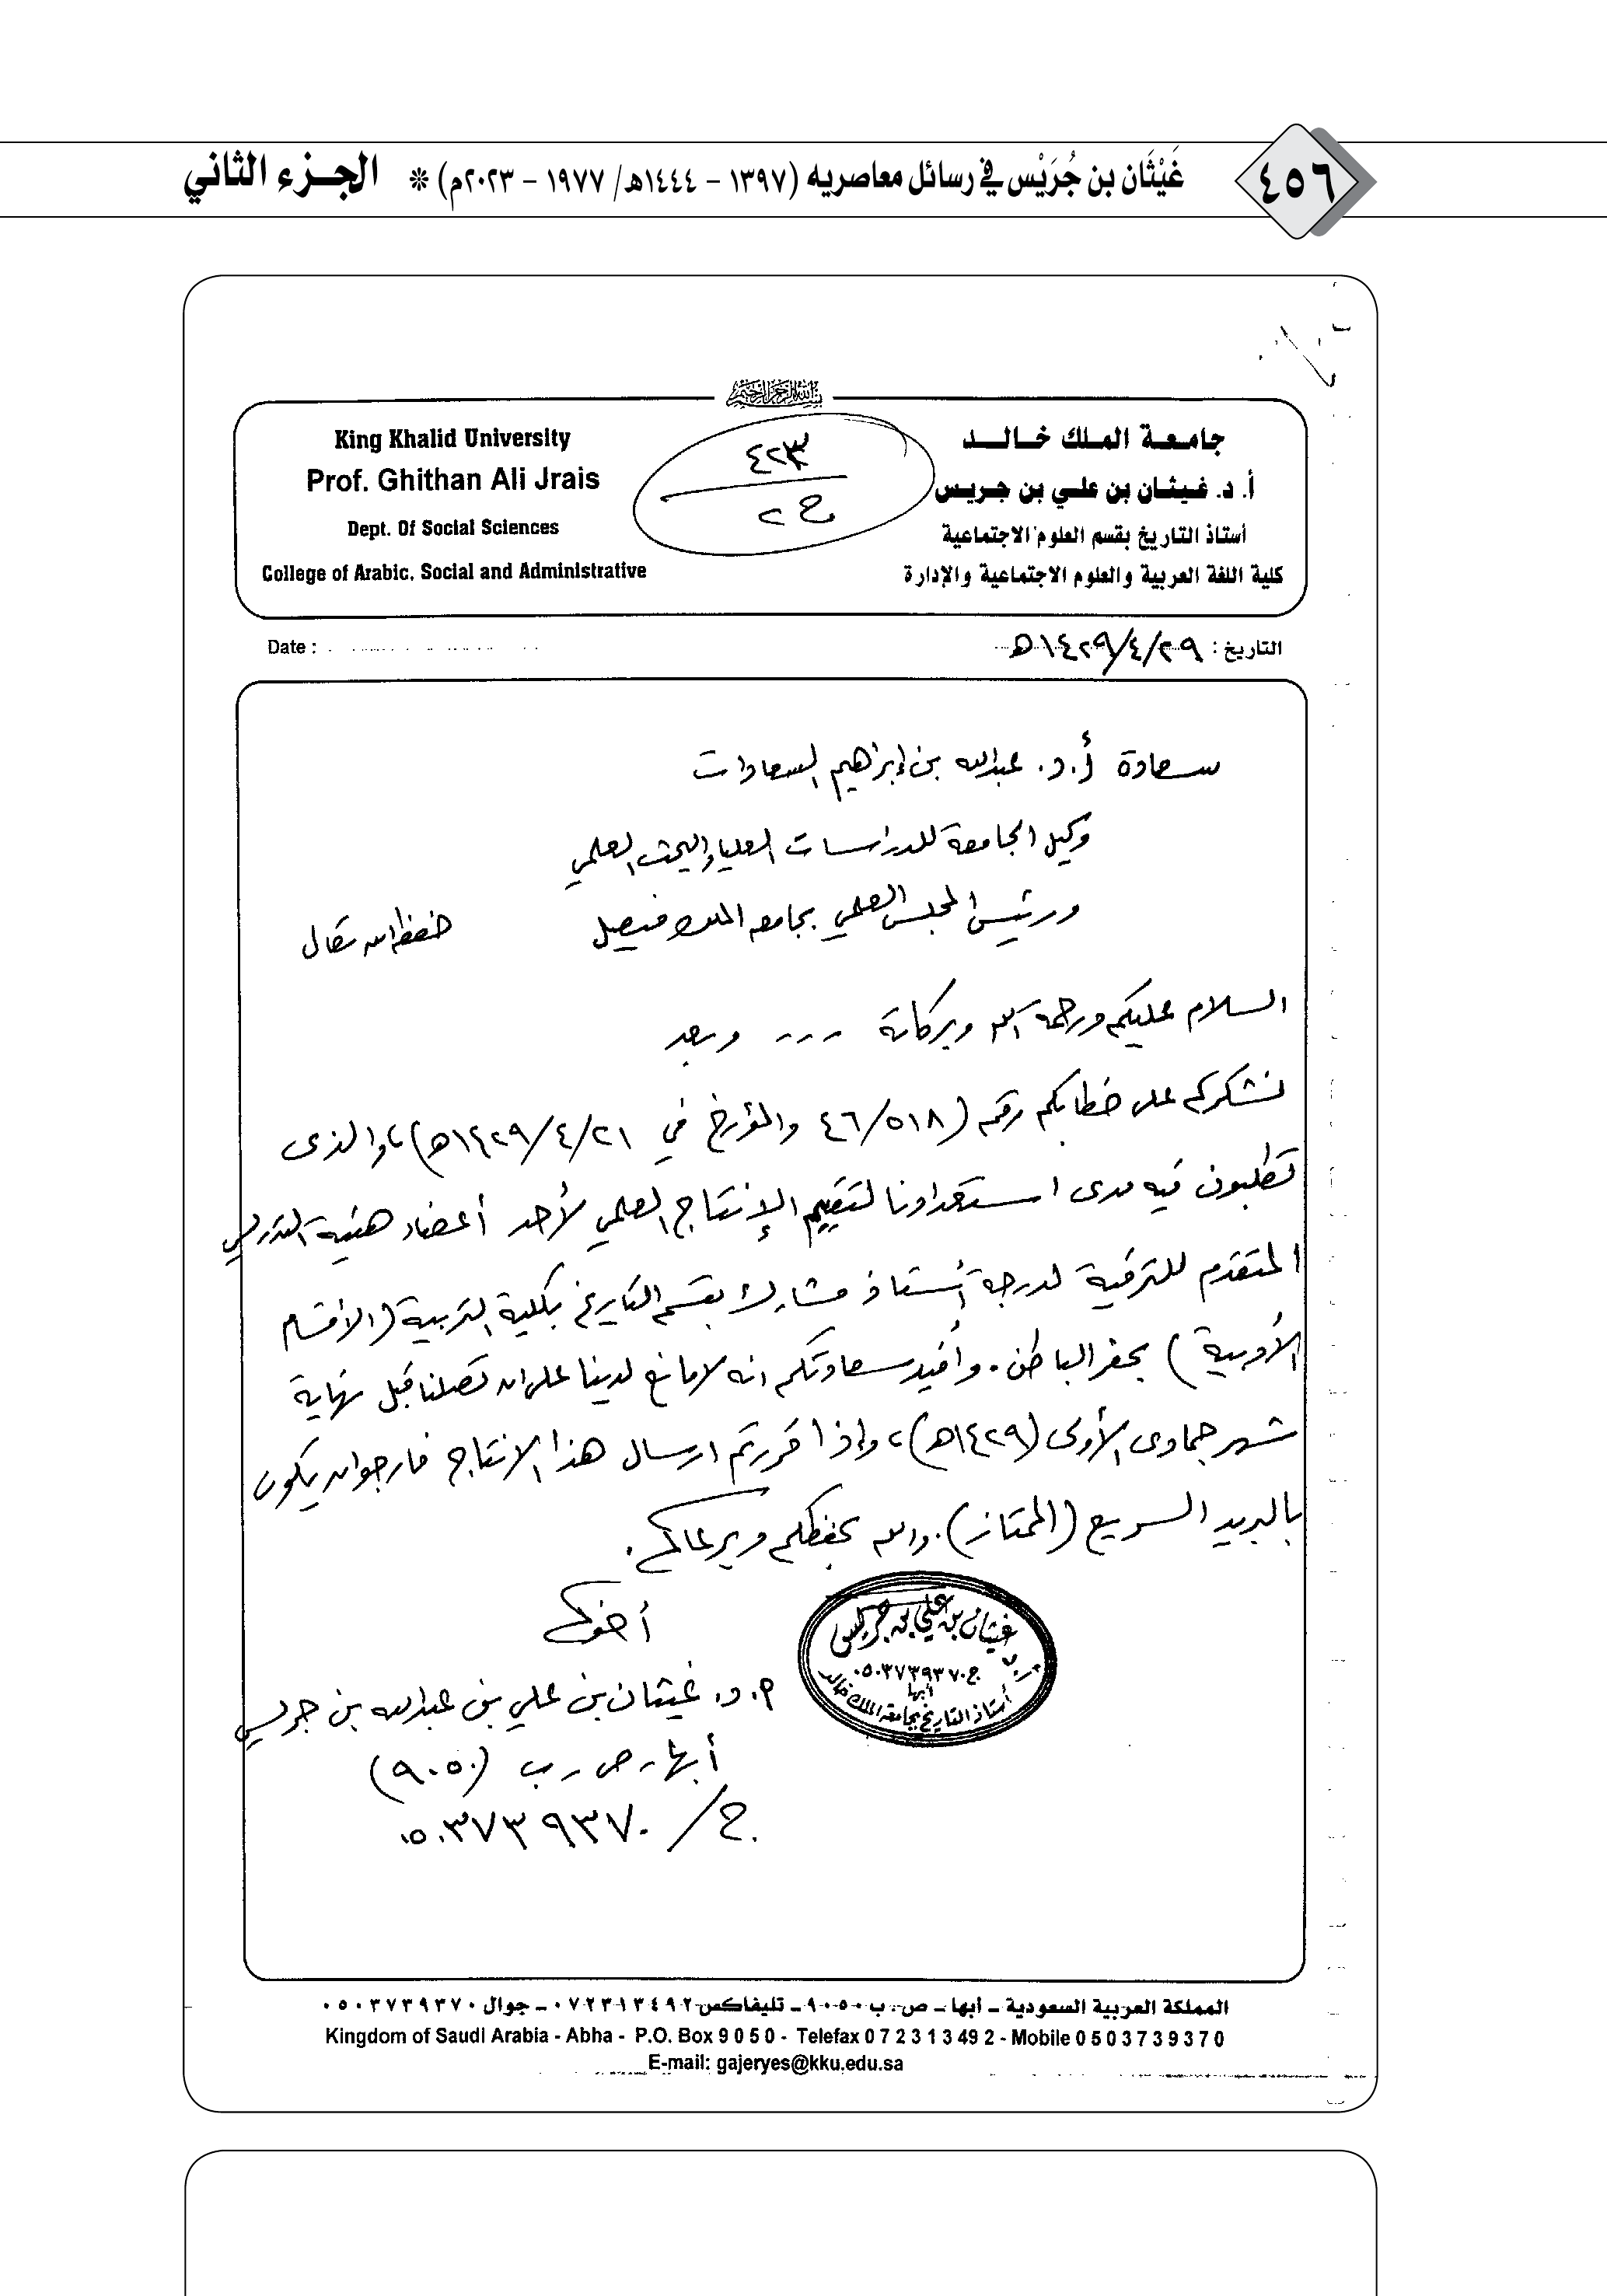 ٤٥٦
غَيْثَان بن جُرَيْس في رسائل معاصريه (١٣٩٧ - ١٤٤٤هـ/ ١٩٧٧ - ٢٠٢٣م) * الجـزء الثاني
بسم الله الرحمن الرحيم
جامـعـة الملـك خـالـــد
أ. د. غـيـثـان بن علـي بن جـريـس
أستاذ التاريخ بقسم العلوم الاجتماعية
كلية اللغة العربية والعلوم الاجتماعية والإدارة
٤٢٣
ح ٢
King Khalid University
Prof. Ghithan Ali Jrais
Dept. Of Social Sciences
College of Arabic, Social and Administrative
التاريخ : ٢٩/٤/١٤٢٩هـ
Date :
سعادة أ.د. عبدالله بن إبراهيم السعادات
وكيل الجامعة للدراسات العليا والبحث العلمي
ورئيس المجلس العلمي بجامعة الملك فيصل حفظه الله تعالى
السلام عليكم ورحمة الله وبركاته --- وبعد
نشكركم على خطابكم رقم (٤٦/٥١٨ والمؤرخ في ٢١/٤/١٤٢٩هـ)، والذي
تطلبون فيه مدى استعدادنا لتقييم الإنتاج العلمي لأحد أعضاء هيئة التدريس
المتقدم للترقية لدرجة أستاذ مشارك بقسم التاريخ بكلية التربية (الأقسام
الأدبية) بحفر الباطن. وأفيد سعادتكم انه لا مانع لدينا على ان تصلنا قبل نهاية
شهر جمادى الأولى (١٤٢٩هـ)، وإذا قررتم ارسال هذا الانتاج فارجو ان يكون
بالبريد السريع (الممتاز). والله يحفظكم ويرعاكم.
أخوكم
أ. د. غيثان بن علي بن عبدالله بن جريس
أبها - ص - ب (٩٠٥٠)
ج/ ٠٥٠٣٧٣٩٣٧٠
غيثان بن علي بن جريس
ج ٠٥٠٣٧٣٩٣٧٠
أبها
أستاذ التاريخ بجامعة الملك خالد
المملكة العربية السعودية - أبها - ص. ب ٩٠٥٠ - تليفاكس ٠٧٢٣١٣٤٩٢ - جوال ٠٥٠٣٧٣٩٣٧٠
Kingdom of Saudi Arabia - Abha - P.O. Box 9 0 5 0 - Telefax 0 7 2 3 1 3 49 2 - Mobile 0 5 0 3 7 3 9 3 7 0
E-mail: gajeryes@kku.edu.sa